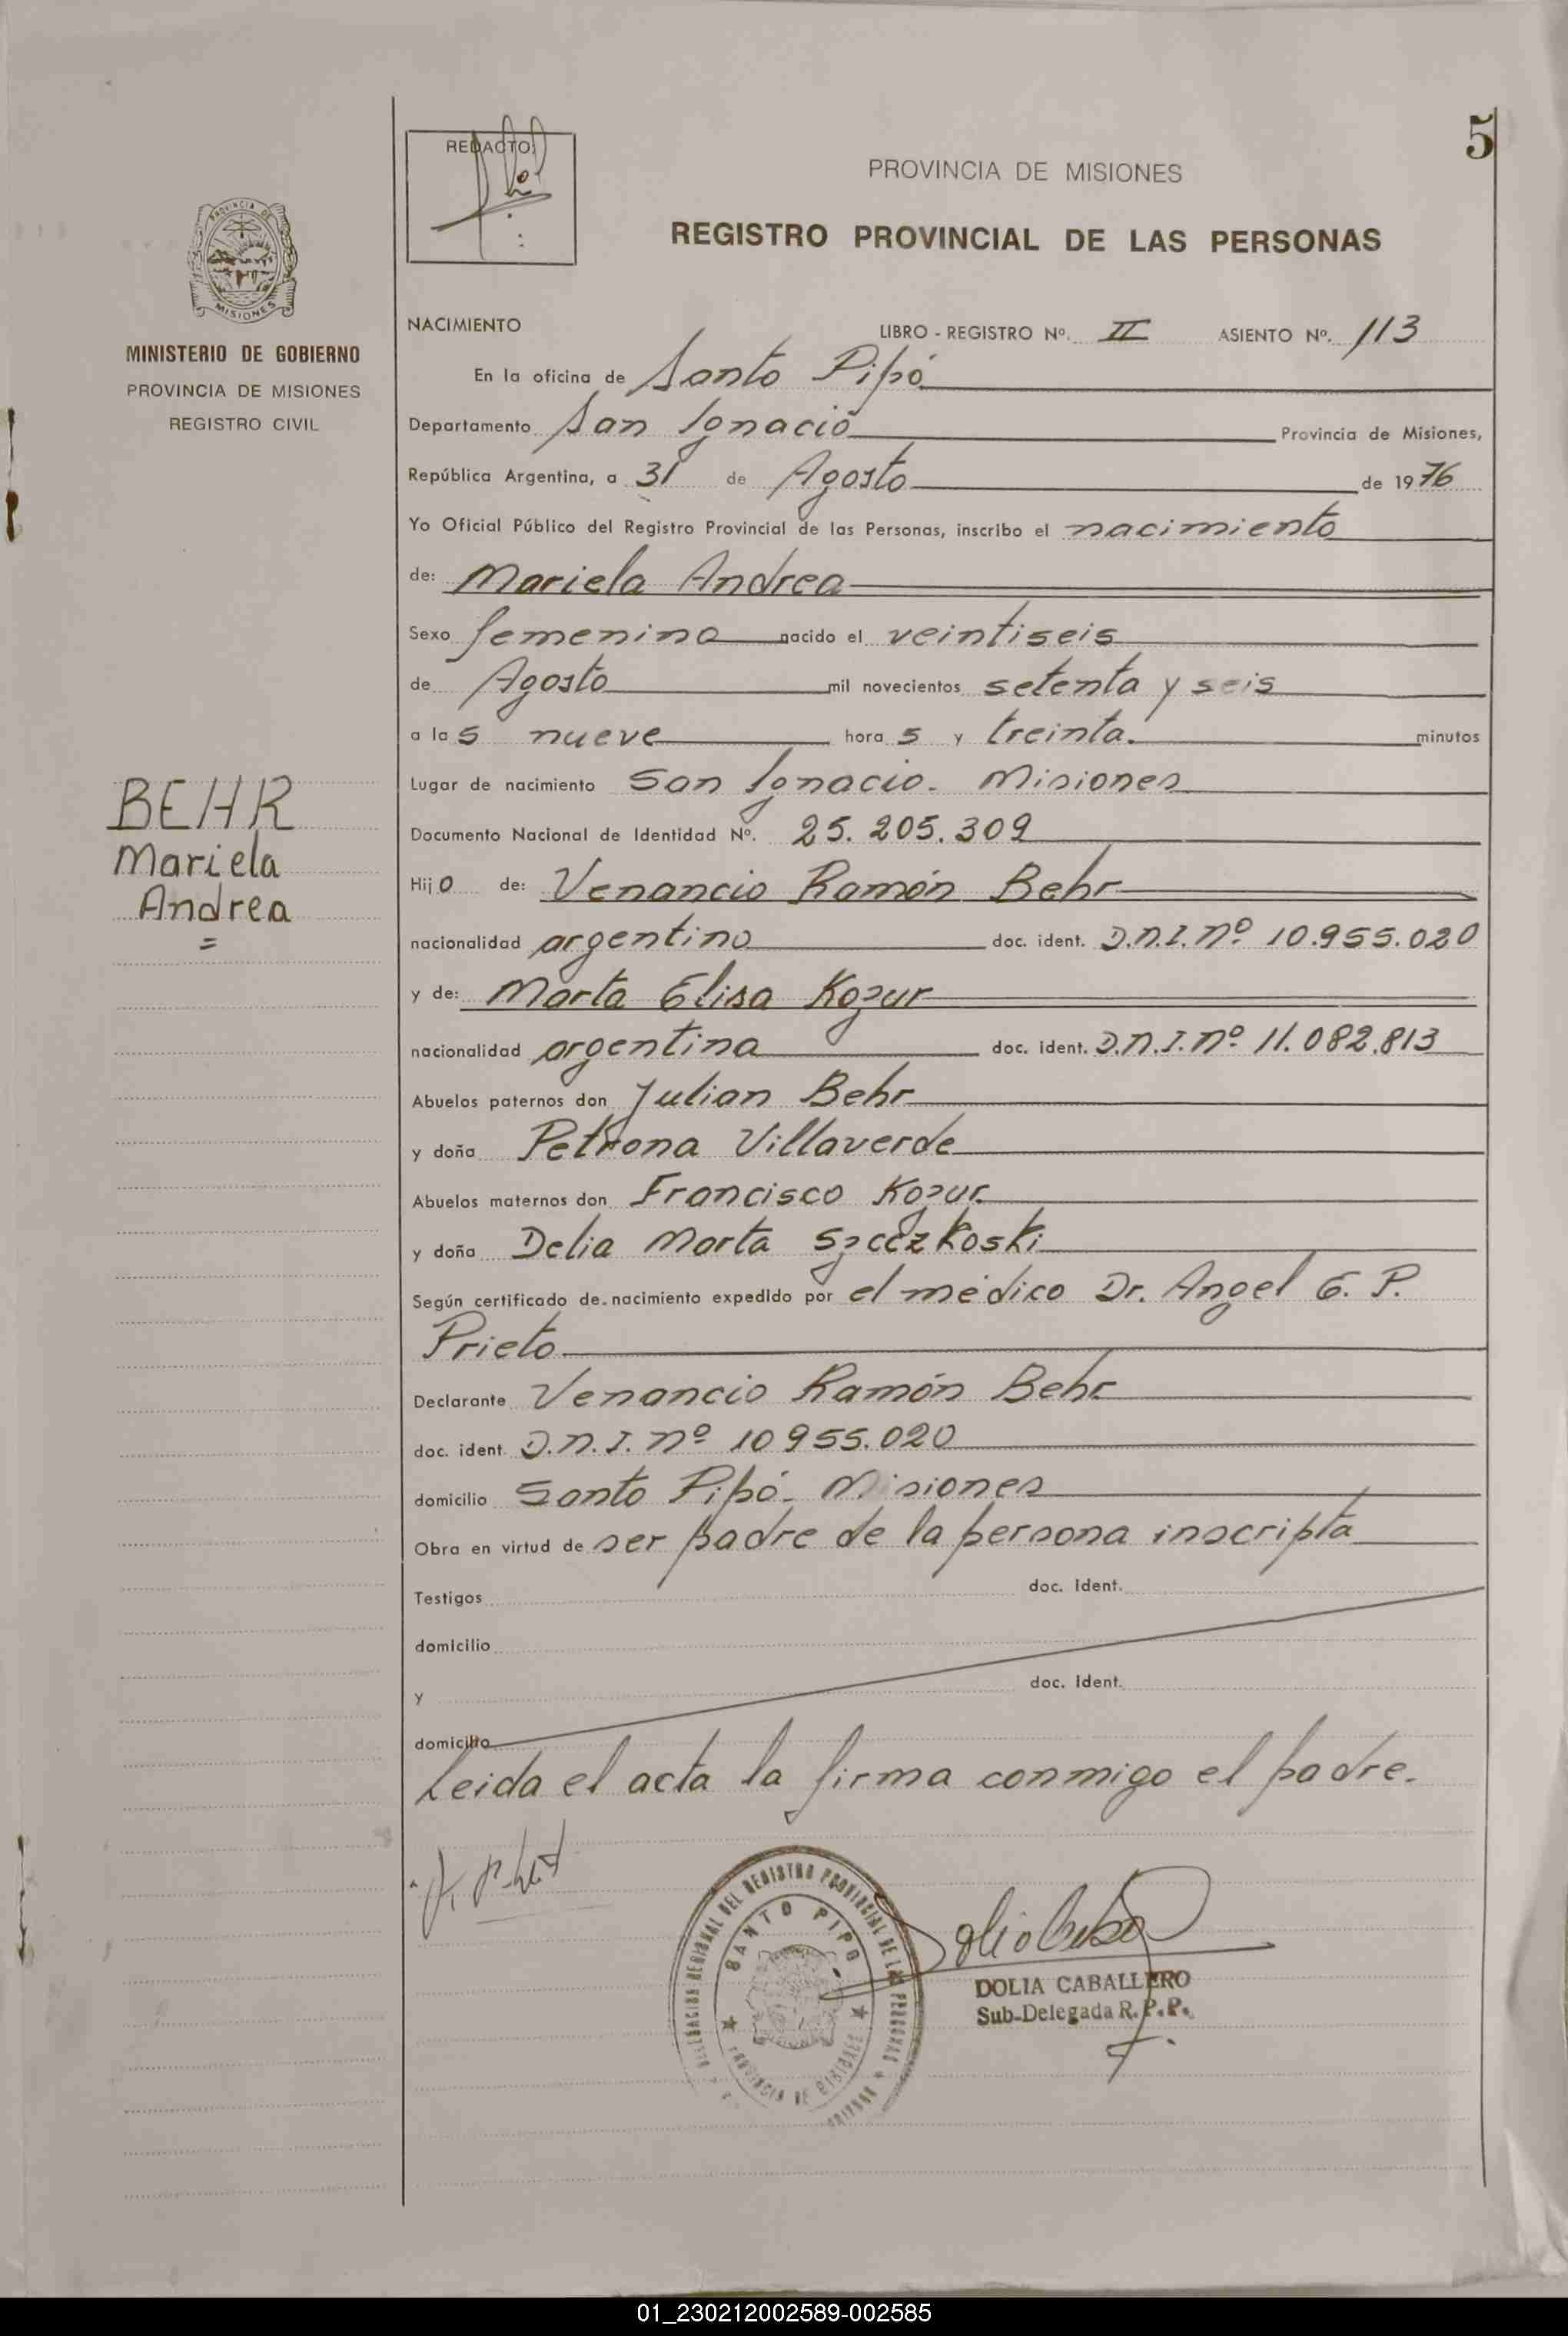 5
REDACTO:
PROVINCIA DE MISIONES
REGISTRO PROVINCIAL DE LAS PERSONAS
PROVINCIA DE
MISIONES
MINISTERIO DE GOBIERNO
PROVINCIA DE MISIONES
REGISTRO CIVIL
BEHR
Mariela
Andrea
=
NACIMIENTO LIBRO - REGISTRO Nº. II ASIENTO Nº. 113
En la oficina de Santo Pipó
Departamento San Ignacio Provincia de Misiones,
República Argentina, a 31 de Agosto de 1976
Yo Oficial Público del Registro Provincial de las Personas, inscribo el nacimiento
de: Mariela Andrea
Sexo femenino nacido el veintiseis
de Agosto mil novecientos setenta y seis
a las nueve horas y treinta. minutos
Lugar de nacimiento San Ignacio. Misiones
Documento Nacional de Identidad Nº. 25.205.309
Hijo de: Venancio Ramón Behr
nacionalidad argentino doc. ident. D.N.I. nº 10.955.020
y de: Marta Elisa Kozur
nacionalidad argentina doc. ident. D.N.I. nº 11.082.813
Abuelos paternos don Julian Behr
y doña Petrona Villaverde
Abuelos maternos don Francisco Kozur
y doña Delia Marta Szcezkoski
Según certificado de nacimiento expedido por el médico Dr. Angel G. P.
Prieto
Declarante Venancio Ramón Behr
doc. ident. D.N.I. nº 10955.020
domicilio Santo Pipó. Misiones
Obra en virtud de ser padre de la persona inscripta
Testigos doc. Ident.
domicilio
y doc. Ident.
domicilio
Leida el acta la firma conmigo el padre.
DELEGACION REGIONAL DEL REGISTRO PROVINCIAL DE LAS PERSONAS
SANTO PIPO
PROVINCIA DE MISIONES
DOLIA CABALLERO
Sub-Delegada R.P.P.
01_230212002589-002585